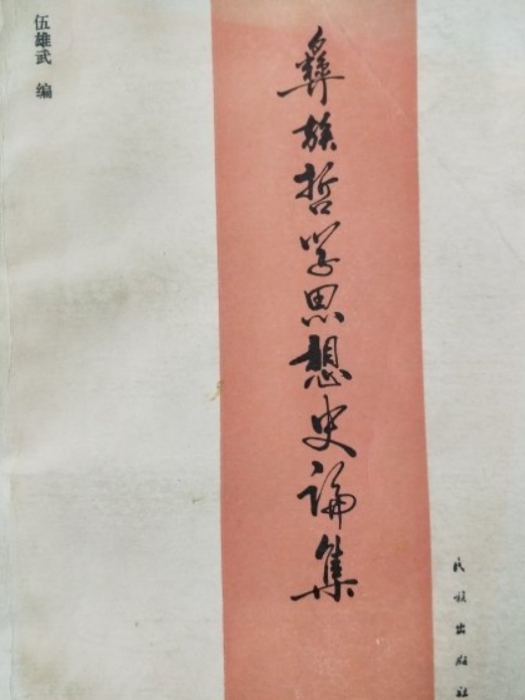 伍雄武 编
彝族哲学思想史論集
民族出版社